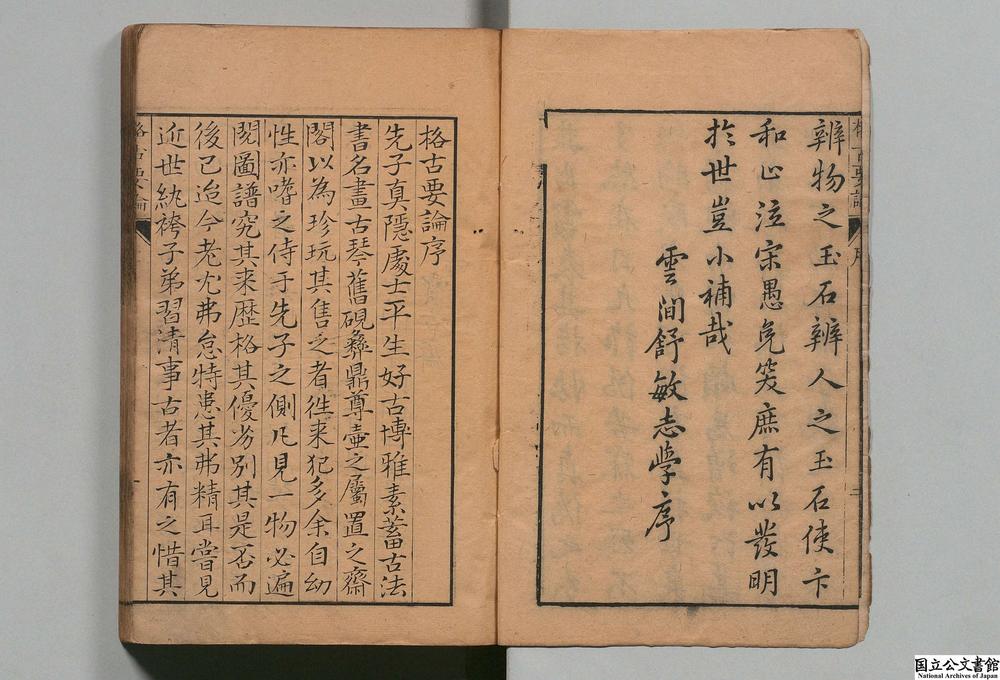 辨物之玉石辨人之玉石使卞
和止泣宋愚免笑庶有以發明
於世豈小補哉
雲間舒敏志學序
格古要論序
先子真隱處士平生好古博雅素蓄古法
書名畫古琴舊硯彝鼎尊壺之屬置之齋
閣以為珍玩其售之者徃来犯多余自幼
性亦嗜之侍于先子之側凡見一物必遍
閱圖譜究其来歷格其優劣別其是否而
後已迨今老尤弗怠特患其弗精耳嘗見
近世紈袴子弟習清事古者亦有之惜其
格古要論
国立公文書館
National Archives of Japan